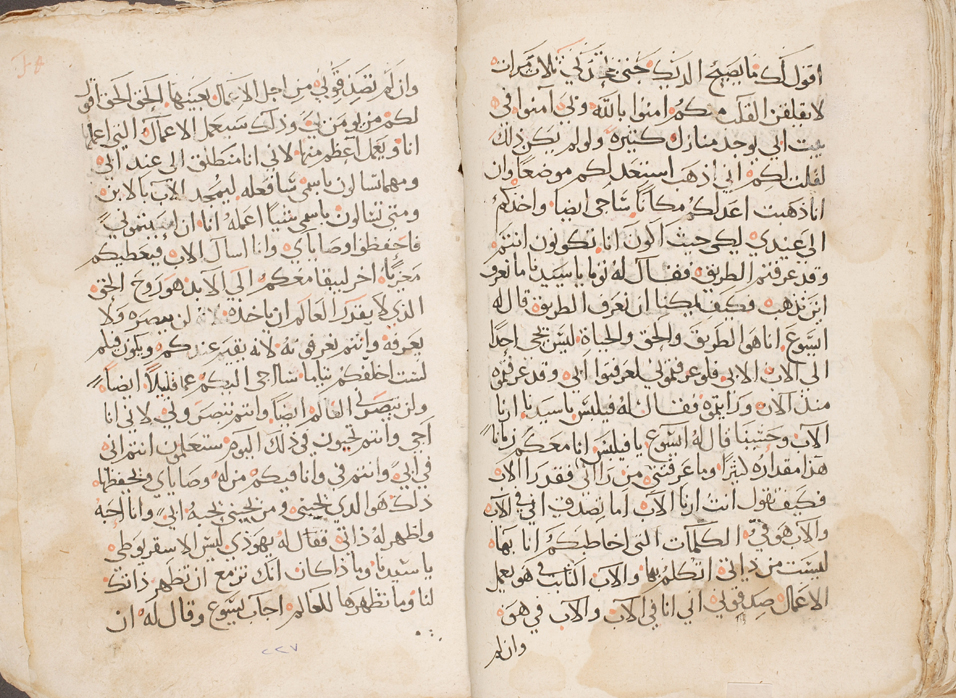 اقول لك ما يصيح الديك حتى تجحدني ثلاث مرات
لا يقلقن القلب منكم امنوا بالله وبي آمنوا في
بيت ابي توجد منازل كثيرة ولو لم يكن ذلك
لقلت لكم اني اذهب استعد لكم موضعا وان
انا ذهبت اعد لكم مكانا سأجي ايضا واخذكم
الى عندي لكي حيث اكون انا تكونون انتم
وقد عرفتم الطريق فقال له توما يا سيدنا ما نعرف
اين تذهب وكيف يمكنا ان نعرف الطريق قال له
ايسوع انا هو الطريق والحق والحياة ليس يجي احدا
الى الاب الا بي فلو عرفتموني لعرفتوا ابي وقد عرفتموه
منذ الان ورايتموه فقال له فيلبس يا سيدنا ارنا
الاب وحسبنا قال له ايسوع يا فيلبس انا معكم زمانا
هذا مقداره كثيرا وما عرفتني من راآني فقد راا الاب
فكيف تقول انت ارنا الاب اما تصدق اني في الاب
والاب هو في الكلمات التي اخاطبكم انا بها
ليست من ذاتي اتكلم بها والاب الثابت في هو يعمل
الاعمال صدقوني اني انا في الاب والاب في هو
وان لم
وان لم تصدقوني من اجل الاعمال بعينها الحق الحق اقول
لكم من يومن بي وذلك سيعمل الاعمال التي اعملها
انا ويعمل اعظم منها لاني انا منطلق الى عند ابي
ومهما سالون باسمي سافعله ليمجد الاب بالابن
ومتى تسالون باسمي شيئا اعمله انا ان احببتموني
فاحفظوا وصاياي وانا اسال الاب فيعطيكم
معزيا اخر ليبقا معكم الى الابد هو روح الحق
الذي لا يقدر العالم ان ياخذه لانه لن يبصره ولا
يعرفه وانتم تعرفونه لانه يقيم عندكم ويكون فيكم
لست اخلفكم يتاما سااجي اليكم عما قليلا ايضا
ولن يبصرني العالم ايضا وانتم تبصروني لاني انا
احي وانتم تحيون في ذلك اليوم ستعلمون انتم اني
في ابي وانتم في وانا فيكم من له وصاياي ويحفظها
ذلك هو الذي يحبني ومن يحبني يحبه ابي وانا احبه
واظهر له ذاتي فقال له يهوذي ليس الاسقريوطي
يا سيدنا وماذا كان انك تزمع ان تظهر ذاتك
لنا وما تظهرها للعالم اجاب ايسوع وقال له ان
٢٢٧